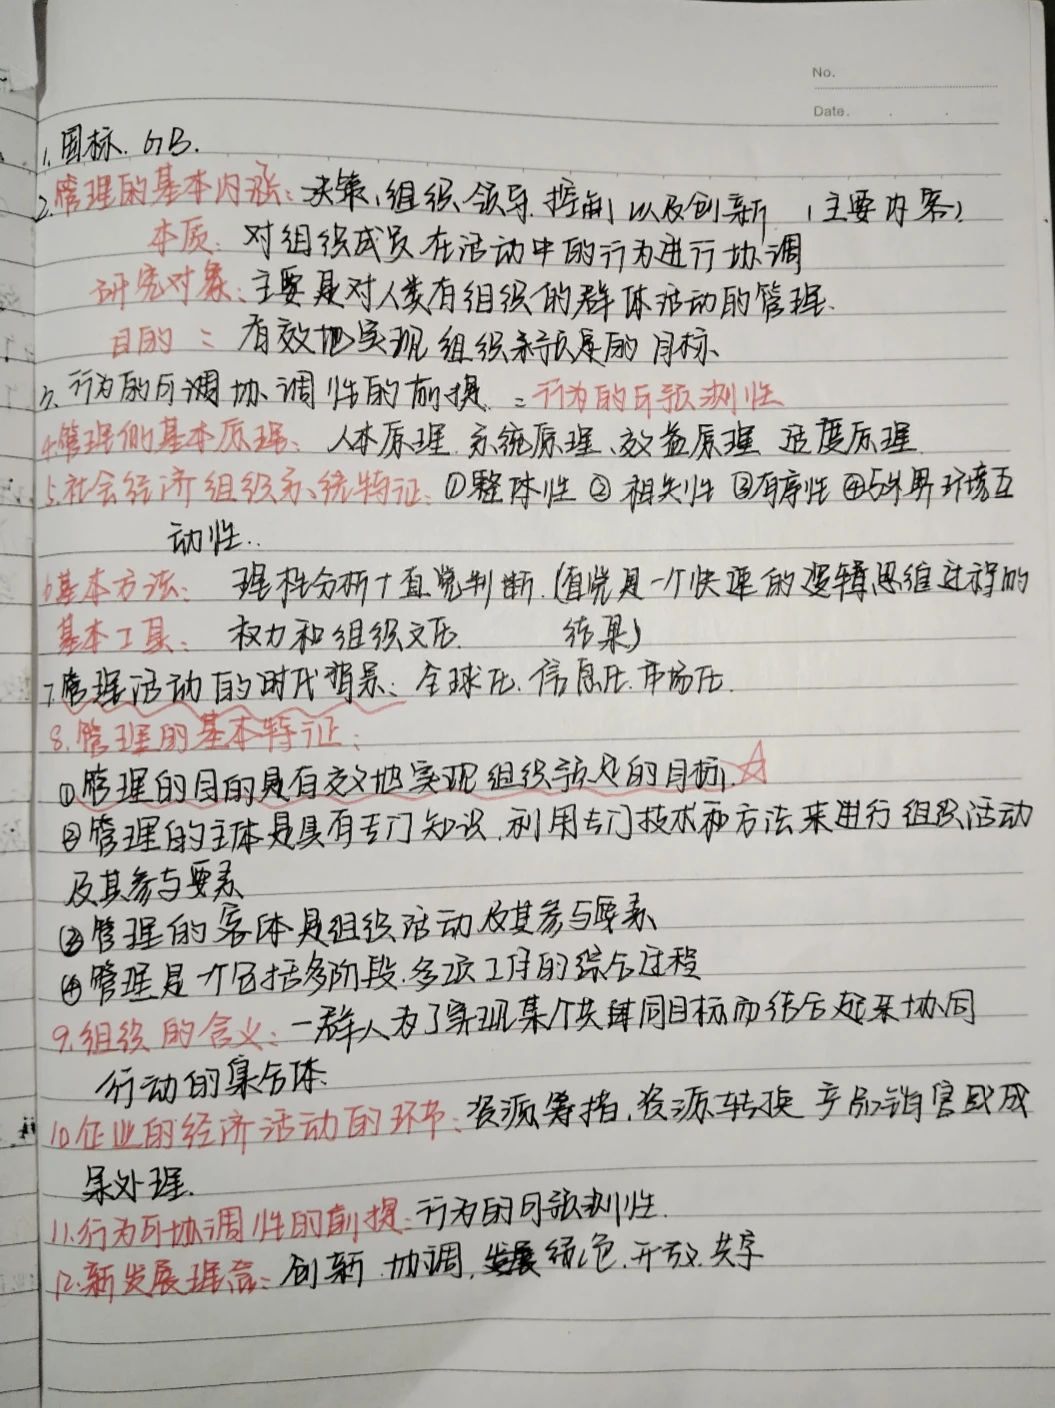 No.
Date.
1. 国标. GB.
2. 管理的基本内涵: 决策, 组织、领导. 控制, 以及创新 (主要内容)
本质: 对组织成员在活动中的行为进行协调
研究对象: 主要是对人类有组织的群体活动的管理.
目的: 有效地实现组织未来发展的目标、
3. 行为的可调协调性的前提: 行为的可预测性
4. 管理的基本原理: 人本原理. 系统原理、效益原理 适度原理
5. 社会经济组织系统特征: ①整体性 ② 相关性 ③有序性 ④与外界环境互
动性..
6 基本方法: 理性分析+直觉判断. (直觉是一个快速的逻辑思维过程的
基本工具: 权力和组织文化. 结果)
7. 管理活动的时代背景: 全球化. 信息化. 市场化.
8. 管理的基本特征:
①管理的目的是有效地实现组织预定的目标. ☆
②管理的主体是具有专门知识. 利用专门技术和方法来进行组织活动
及其参与要素
③管理的客体是组织活动及其参与要素
④管理是个包括多阶段. 多项工作的综合过程
9. 组织的含义: 一群人为了实现某个共同目标而结合起来协同
行动的集合体.
10 企业的经济活动的环节: 资源筹措. 资源转换 产品销售或成
果处理.
11. 行为可协调性的前提: 行为的可预测性.
12. 新发展理念: 创新. 协调. 绿色. 开放. 共享